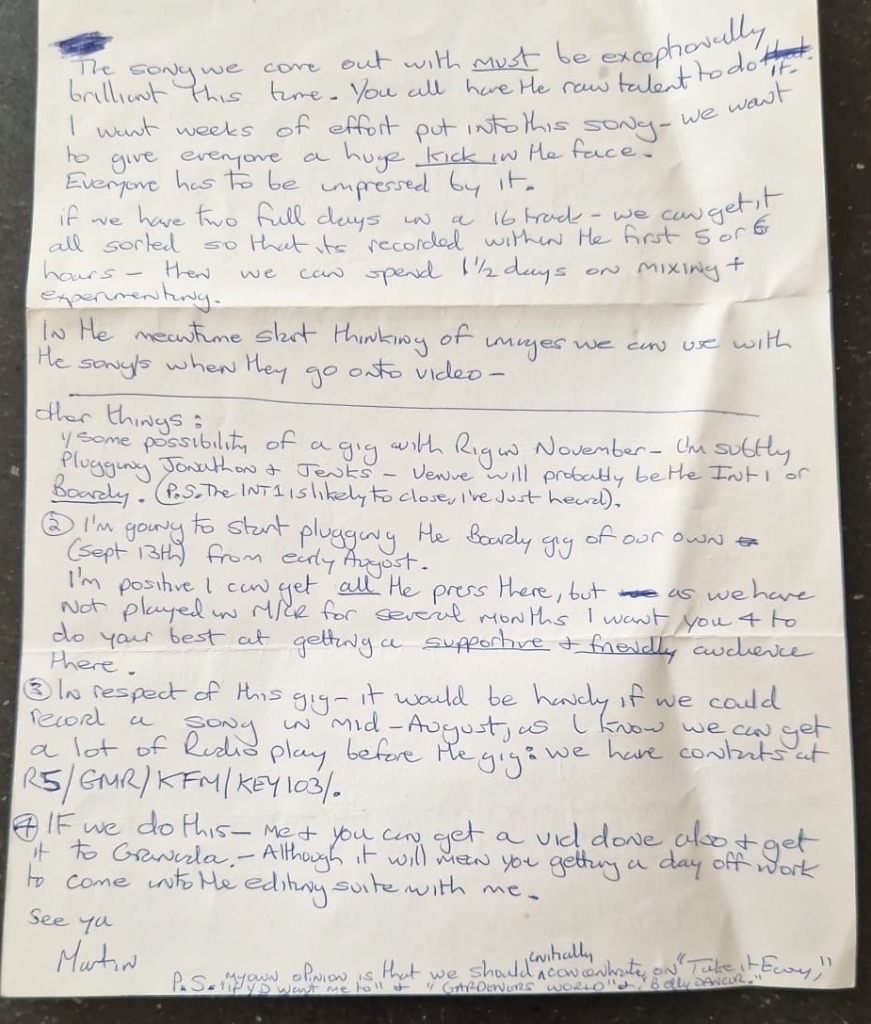 The song we come out with must be exceptionally
brilliant this time. You all have the raw talent to do that. it.
I want weeks of effort put into this song – we want
to give everyone a huge kick in the face.
Everyone has to be impressed by it.
if we have two full days in a 16 track – we can get it
all sorted so that its recorded within the first 5 or 6
hours – then we can spend 1 1/2 days on mixing +
experimenting.
In the meantime start thinking of images we can use with
the song/s when they go onto video –
other things:
1/ Some possibility of a gig with Rig in November – I'm subtly
plugging Jonathon + Jenks – Venue will probably be the Int 1 or
Boardy. (P.S. The INT 1 is likely to close, I've just heard).
② I'm going to start plugging the Boardy gig of our own
(Sept 13th) from early August.
I'm positive I can get all the press there, but as we have
not played in M/CR for several months I want you 4 to
do your best at getting a supportive + friendly audience
there.
③ In respect of this gig – it would be handy if we could
record a song in mid-August, as I know we can get
a lot of Radio play before the gig: we have contacts at
R5/GMR/KFM/KEY103/.
④ IF we do this – me + you can get a vid done also + get
it to Granada. – Although it will mean you getting a day off work
to come into the editing suite with me.
See ya
Martin
P.S. My own opinion is that we should initially concentrate on "Take it Easy,"
"If YD want me to" + "GARDENORS WORLD" + "Belly DANCER."